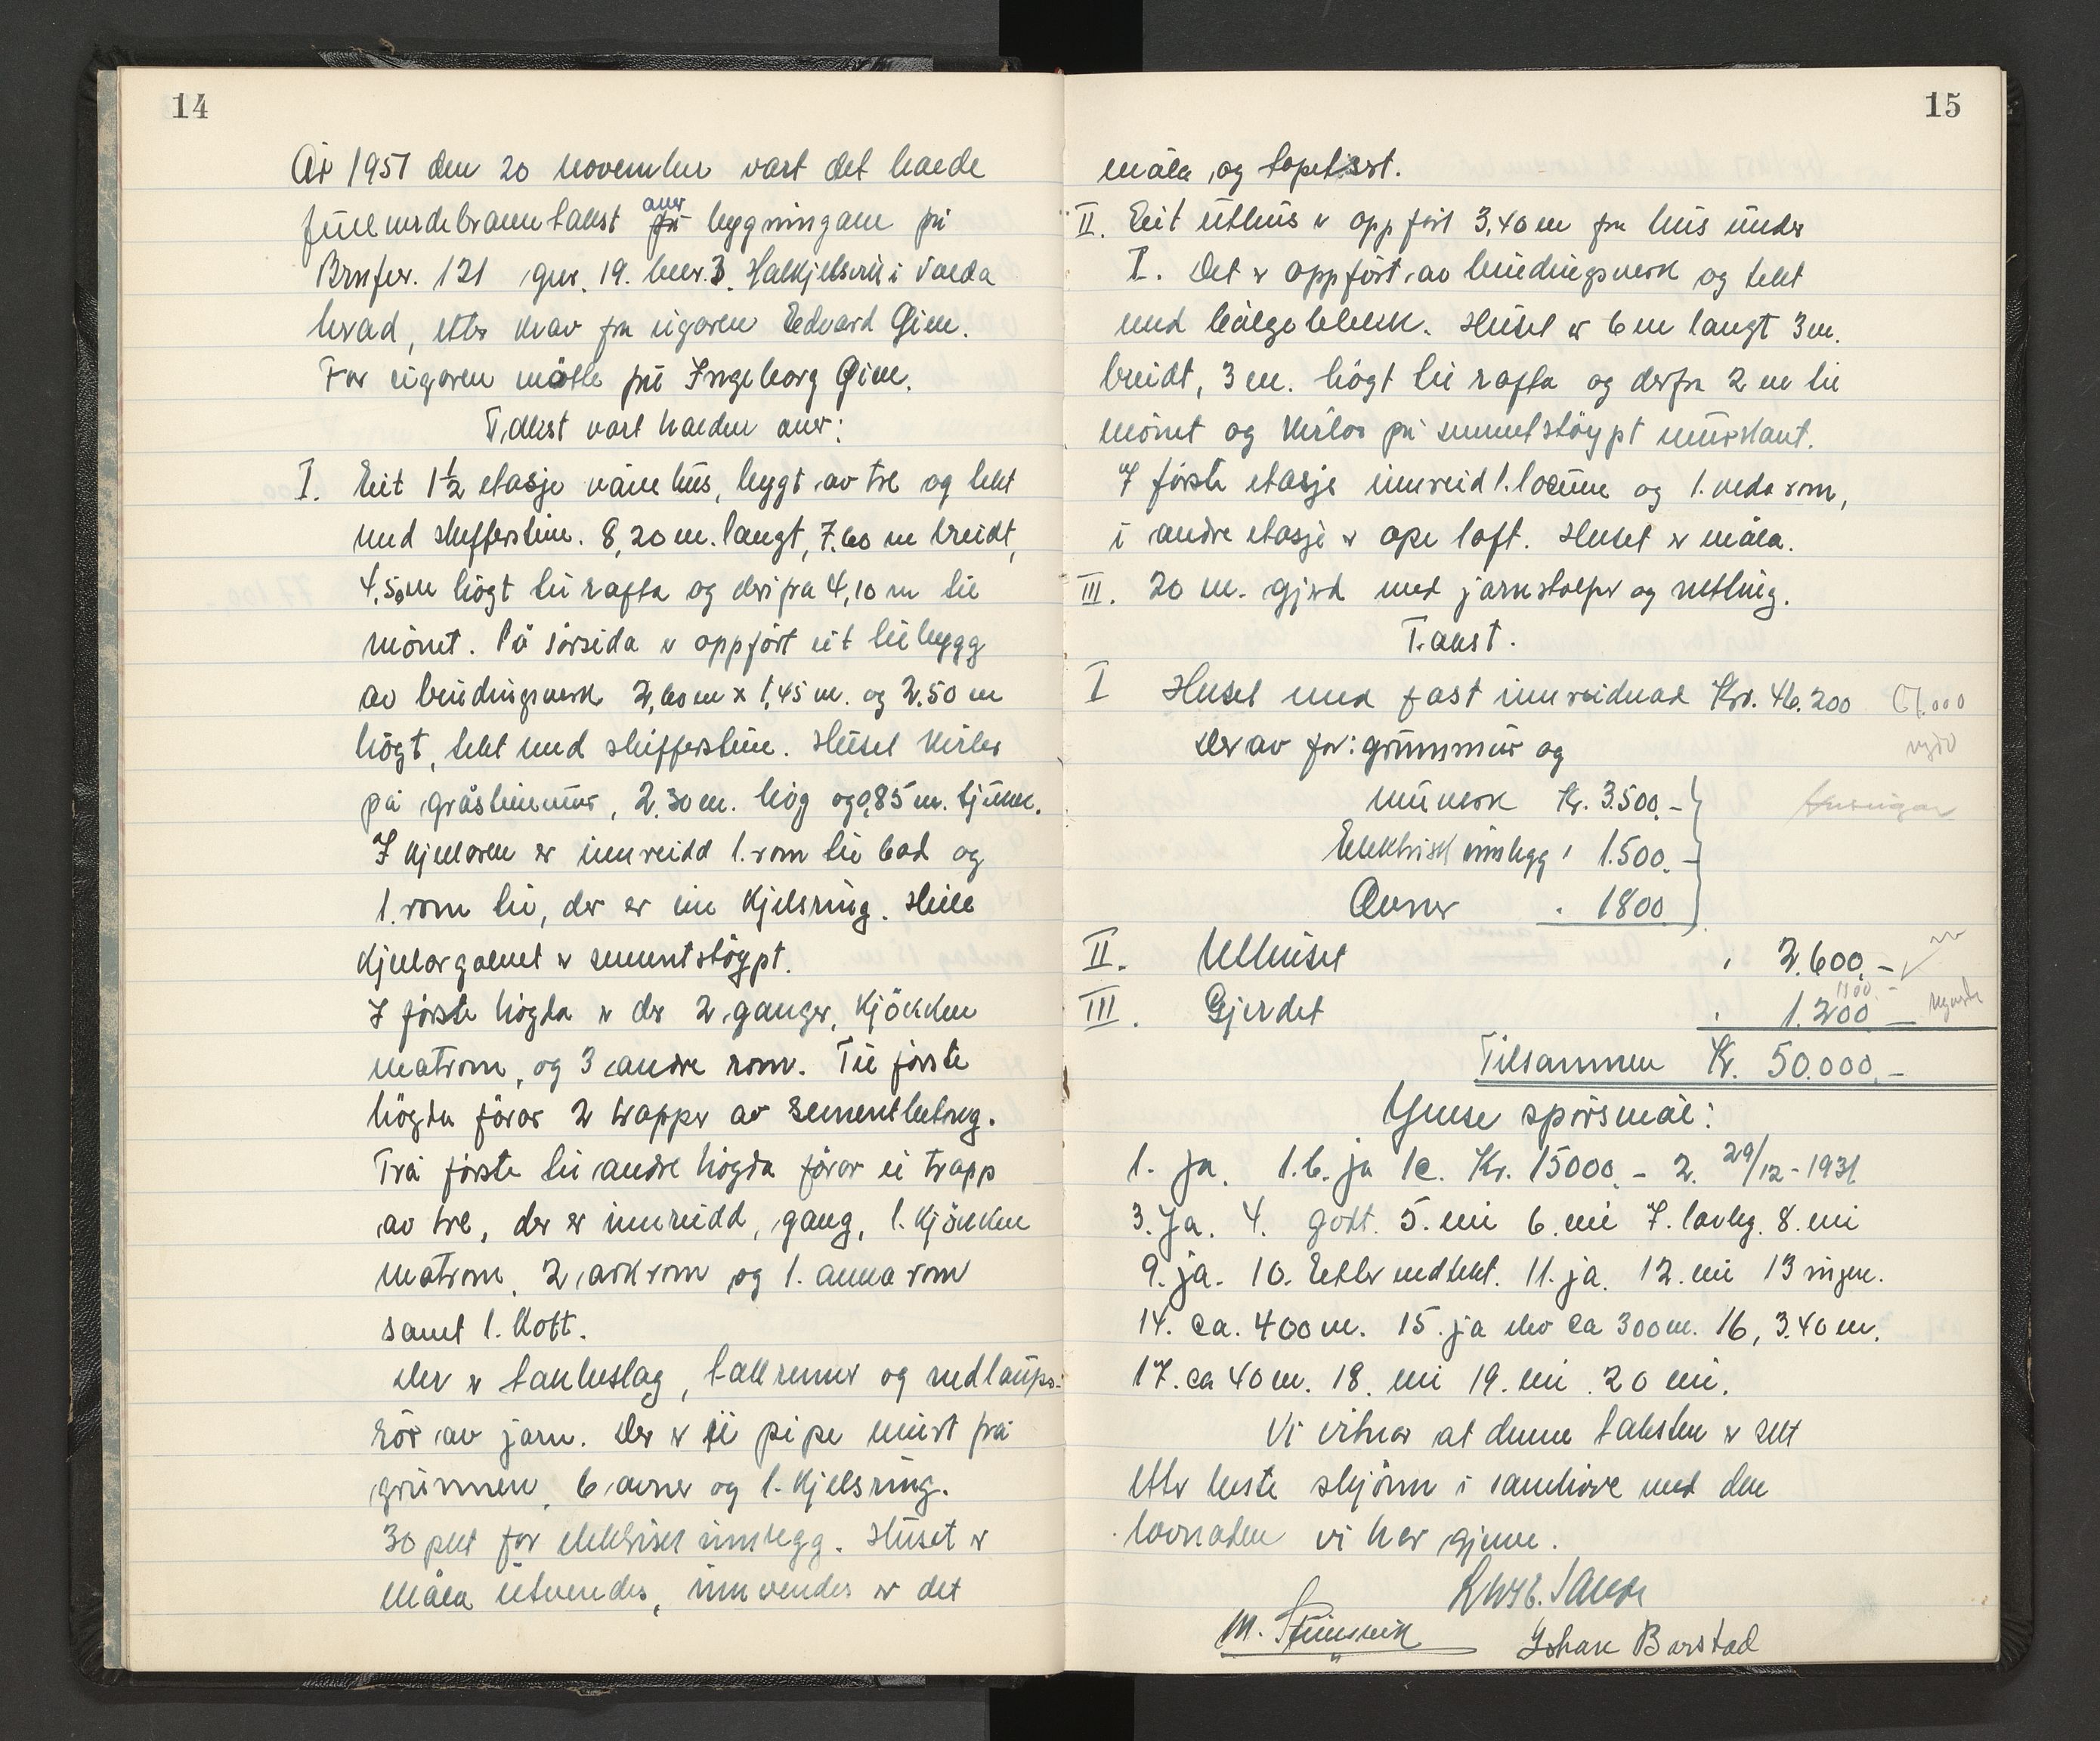 14
År 1951 den 20 november vart det halde
fullverdebranntakst på over bygningane på
Brnfor. 121 gnr. 19. bnr. 3. Halkjelsvik i Volda
herad, etter krav fra eigaren Edvard Gjelle.
For eigaren møtte frü Ingeborg
Takst vart halden over:
I. Eit 1½ etasje våne hus, bygt av tre og tekt
med skifferstein. 8,20 m. langt, 7.60 m breidt,
4,50m högt til rafta og derifra 4,10 m til
mönet. På sörsida er oppfört eit tilbygg
av bindingsverk 2,60 m x 1,45 m. og 2.50 m
högt, tekt med skifferstein. Huset kviler
på gråsteinmur, 2.30 m. hög og 0,85 m. tjukk.
I kjellaren er innreidd 1. rom til bad og
1. rom til, der er ein kjelsring. Heile
kjellargolvet er sementstöypt.
I förste högda er der 2 ganger, kjökken
matrom, og 3 andre rom. Til förste
högda förar 2 trapper av sementbetong.
Frå förste til andre högda förar ei trapp
av tre, der er innreidd, gang, 1. kjökken
matrom, 2 arkrom og 1. anna rom
samt 1. kott.
Der er takbeslag, takrenner og nedlaups-
rör av jarn. Der er ei pipe murt frå
grunnen, 6 omner og 1. kjelsring.
30 pkt for elektrisk innlegg. Huset er
måla utvendes, innvendes er det
15
måla og tapetsert.
II. Eit uthus er oppfört 3,40 m fra hus under
I. Det er oppfört av bindingsverk og tekt
med bölgeblekk. Huset er 6 m langt 3 m.
breidt, 3 m. högt til rafta og derfra 2 m til
mönet og kvilar på sementstöypt murkant.
I förste etasje innreid 1. locum og 1. vedarom,
i andre etasje er ope loft. Huset er måla.
III. 20 m. gjerd med jarnstolper og netting.
Takst.
I Huset med fast innreidnad Kr. 46.200
Derav for: grunnmur og
murverk Kr. 3.500.-
Elektrisk innlegg " 1.500.-
Ovner " 1800
II. Uthuset " 2.600.-
III. Gjerdet " 1.200 -
Tilsammen Kr. 50.000.-
Ymse spörsmål:
1. ja. 1.b. ja 1c. Kr. 15000.- 2. 29/12-1931
3. Ja. 4. godt. 5. nei 6. nei 7. lovleg. 8. nei
9. ja. 10. Etter vedtekt. 11. ja. 12. nei 13 ingen.
14. ca. 400 m. 15. ja elv ca 300 m. 16, 3.40 m.
17. ca 40 m. 18. nei 19. nei. 20 nei.
Vi vitnar at denne taksten er sett
etter beste skjönn i samhöve med den
lovnaden vi har gjeve.
M.
Johan Barstad